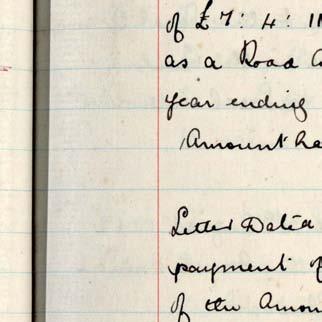 of £7: 4: 11
as a Road
year ending
Amount ha
Letter Dated
payment of
of the Amou